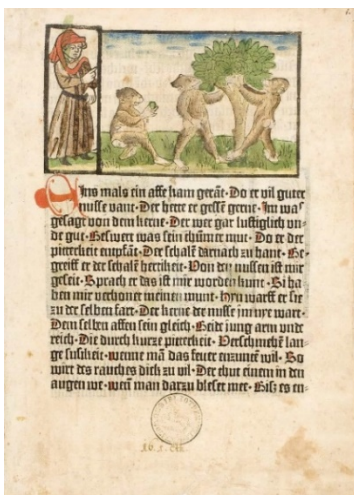 Eins mals ein affe kam gerāt· Do er vil guter
nusse vant· Der hette er gessē gerne· Im waſ
gesagt von dem kerne· Der wer gar lustiglich vn-
de gut· Beswert was sein thūmer mut· Do er der
pitterkeit empfāt· Der schalē darnach zu hant· Be-
greiff er der schalē hertikeit· Von den nussen ist mir
geseit· Sprach er das ist mir worden kunt· Si ha-
ben mir verhonet meinen munt· Hyn warff er sie
zu der selben fart· Der kerne der nusse im nye wart·
Dem selben affen sein gleich· Beide jung arm vnde
reich· Die durch kurze pitterkeit· Verschmehē lan-
ge susikeit· wenne mā das feuer enzunen wil· So
wirt des rauches dick zu vil· Der thut einem in den
augen we· wen̄ man darzu bleset mer· Bisz es en-